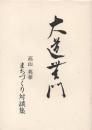 大道無門
高山英華
まちづくり対談集